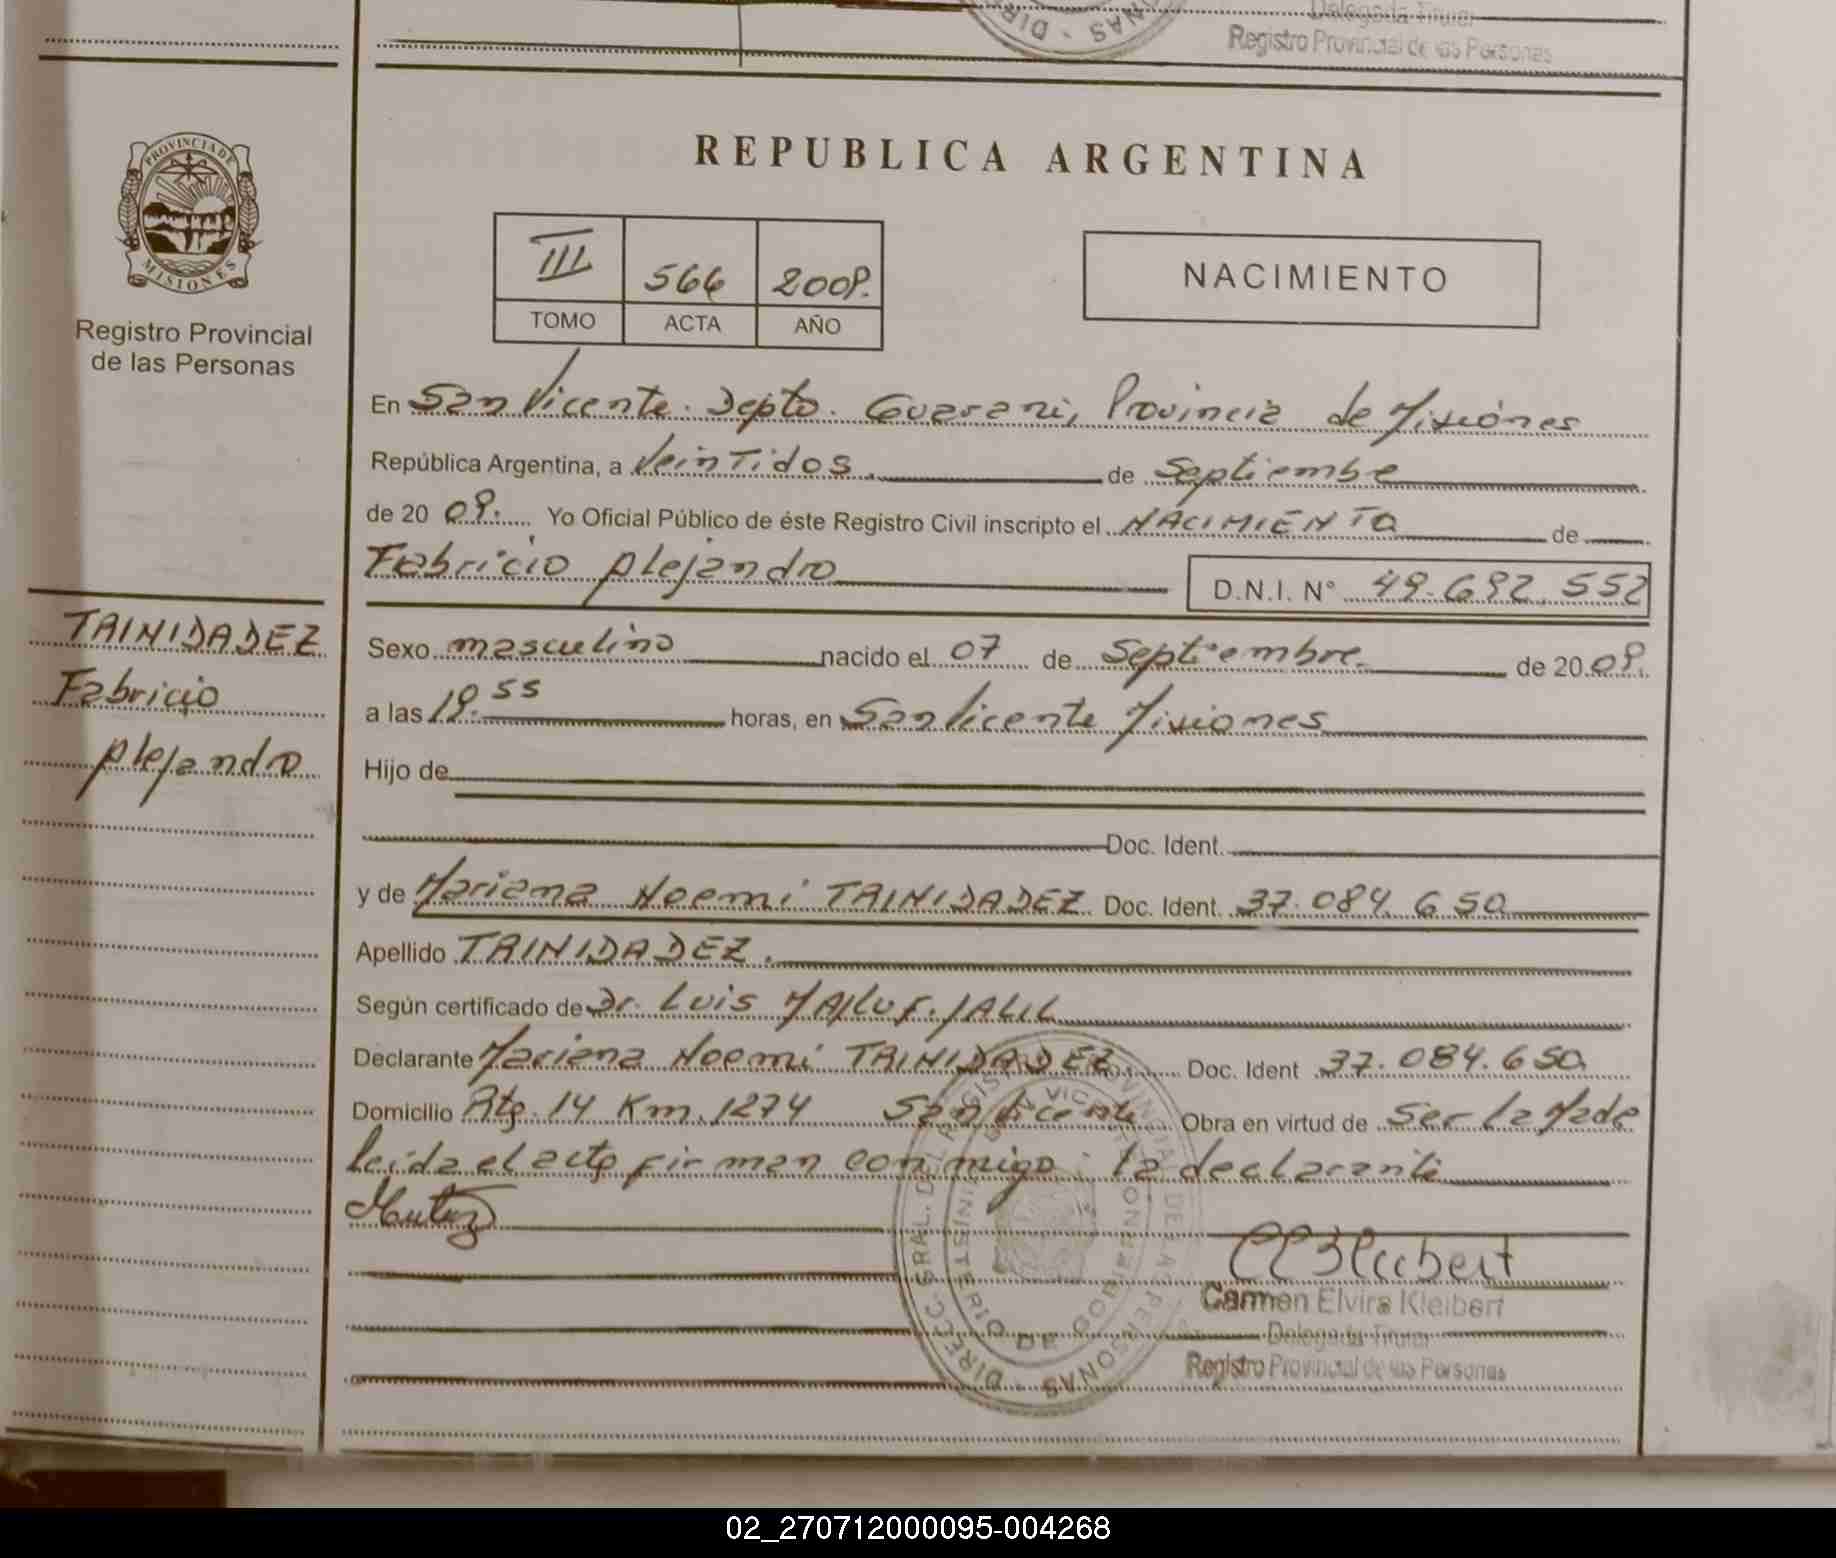 Delegada Titular
Registro Provincial de las Personas
PROVINCIA DE
MISIONES
Registro Provincial
de las Personas
REPUBLICA ARGENTINA
III 566 2009.
TOMO ACTA AÑO
NACIMIENTO
En San Vicente. Depto. Guarani, Provincia de Misiónes
República Argentina, a Veintidos. de Septiembre
de 20 09. Yo Oficial Público de éste Registro Civil inscripto el NACIMIENTO de
Fabricio Alejandro D.N.I. N° 49.692.552
TRINIDADEZ
Fabricio
Alejandro
Sexo masculino nacido el 07 de Septiembre de 20 09.
a las 19.55 horas, en San Vicente Misiones
Hijo de
Doc. Ident.
y de Mariana Noemi TRINIDADEZ Doc. Ident. 37.084.650
Apellido TRINIDADEZ.
Según certificado de Dr. Luis MAJLUF. JALIL
Declarante Mariana Noemi TRINIDADEZ Doc. Ident 37.084.650
Domicilio Rta. 14 Km. 1274 San Vicente Obra en virtud de Ser La Made
leida el acta firman conmigo la declarante
Carmen Elvira Kleibert
Delegada Titular
Registro Provincial de las Personas
02_270712000095-004268